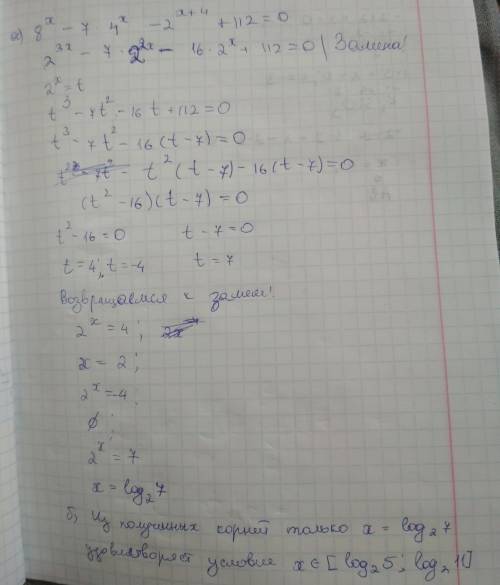 а) 8^x - 7 · 4^x - 2^{x+4} + 112 = 0
2^{3x} - 7 · 2^{2x} - 16 · 2^x + 112 = 0 | Замена!
2^x = t
t^3 - 7t^2 - 16t + 112 = 0
t^3 - 7t^2 - 16(t - 7) = 0
t^2(t - 7) - 16(t - 7) = 0
(t^2 - 16)(t - 7) = 0
t^2 - 16 = 0 t - 7 = 0
t = 4; t = -4 t = 7
Возвращаемся к замене!
2^x = 4;
x = 2;
2^x = -4;
∅;
2^x = 7
x = log_2 7
б) Из полученных корней только x = log_2 7
удовлетворяет условие x ∈ [log_2 5; log_2 11]